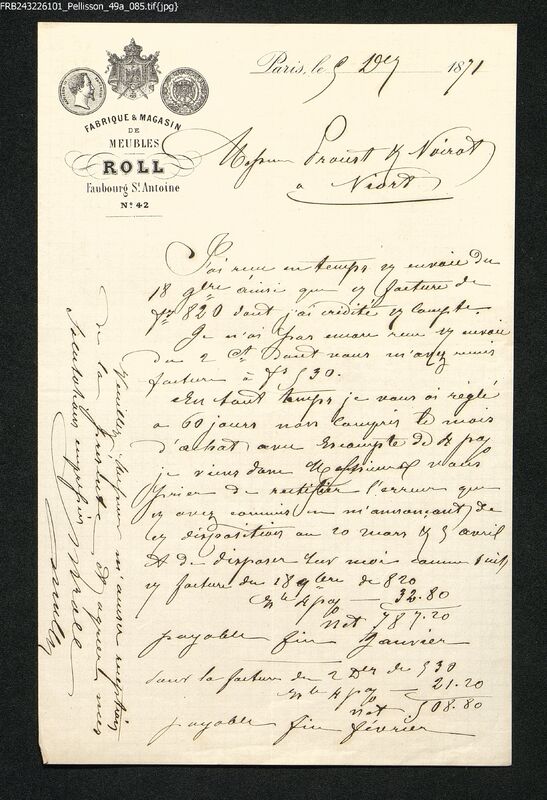 FRB243226101_Pellisson_49a_085.tif{jpg}
FABRIQUE & MAGASIN
DE
MEUBLES
ROLL
Faubourg St. Antoine
No. 42
Paris, le 5 1871
Messieurs Proust & Noirot
a Niort
J'ai reçu en temps envoie du
18 9bre ainsi que facture de
820 dont j'ai crédité compte.
Je n'ai pas encore reçu envoie
du 2 ct dont vous m'avez remis
facture à frs 530.
En tout temps je vous ai réglé
a 60 jours non compris le mois
d'achat avec escompte de 4 p%
je viens donc Messieurs vous
prier de rectifier l'erreur que
avez commis en m'annonçant de
disposition au 20 mars & 5 avril
& de disposer sur moi comme suit
facture du 18 9bre de 820
4 p% — 32.80
Net 787.20
payable fin Janvier
sur la facture du 2 de 530
4 p% — 21.20
Net 508.80
payable fin février
Veuillez Messieurs m'accuser réception
de la & agréer mes
salutations empressées
Roll